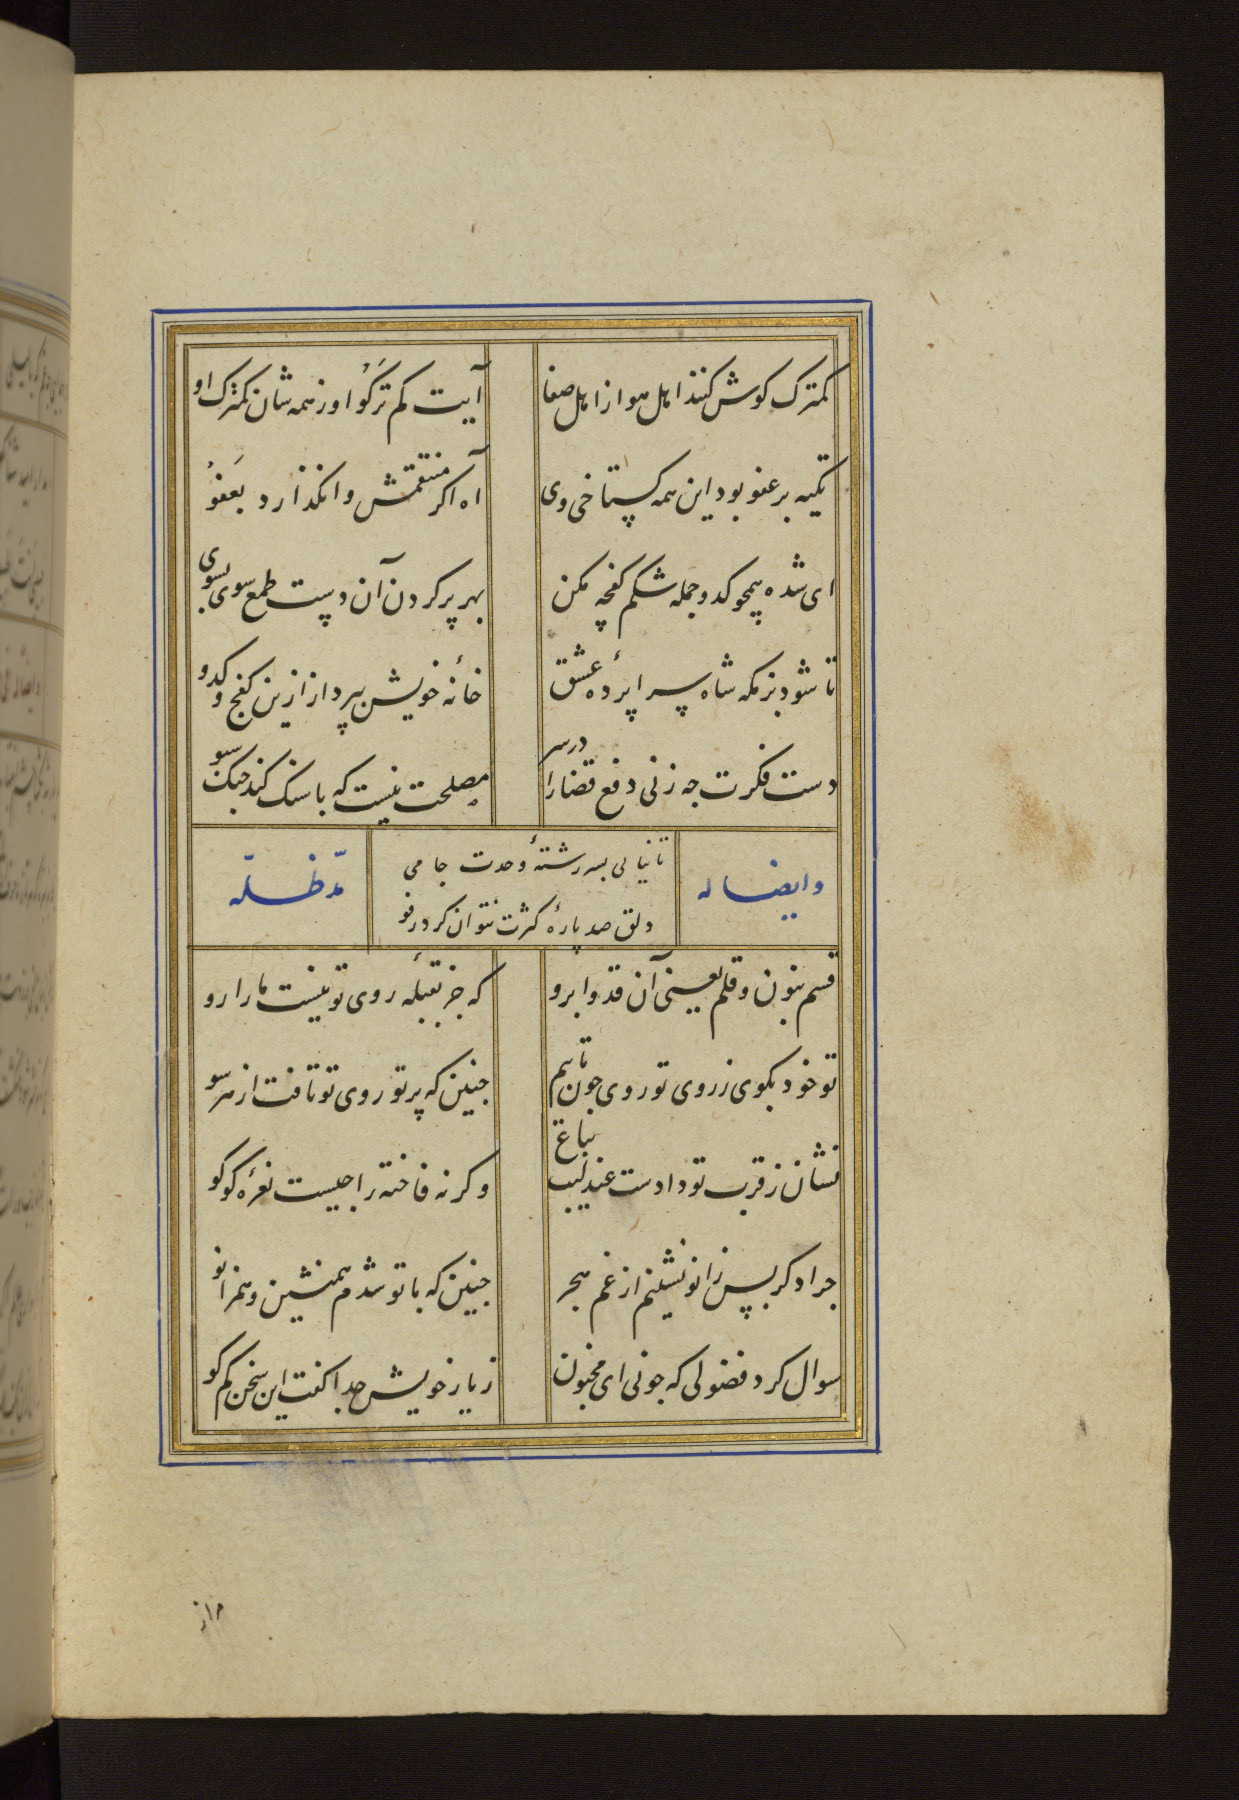 کمترک کوش کنند اهل هوا از اهل صفا
آیت کم ترکوا وز همه شان کمترک او
تکیه بر عفو بود این همه کستاخی وی
اه اکر منتقمش وانکذارد بعفو
ای شده همچو کدو جمله شکم کفچه مکن
بهر پر کردن آن دست طمع سوی بسوی
تا شود بزمکه شاه سراپردهٔ عشق
خانهٔ خویش بپرداز ازین کفچ و کدو
دست فکرت چه زنی دفع قضا را در سر
مصلحت نیست که با سنک کند جنک سبو
وایضا له
تا نیابی بسر رشتهٔ وحدت جامی
دلق صد پارهٔ کثرت نتوان کرد رفو
مدّ ظلّه
قسم بنون و قلم یعنی آن قد و ابرو
که جز بقبلهٔ روی تو نیست ما را رو
تو خود بکوی ز روی تو روی چون تابم
چنین که پرتو روی تو تافت از هر سو
نشان ز قرب تو دادست عندلیب بباغ
وکرنه فاخته را چیست نعرهٔ کوکو
چرا دکر بپس زانو نشینم از غم هجر
چنین که با تو شدم همنشین و همزانو
سوال کرد فضولی که چونی ای مجنون
ز یار خویش جدا کفت این سخن کم کو